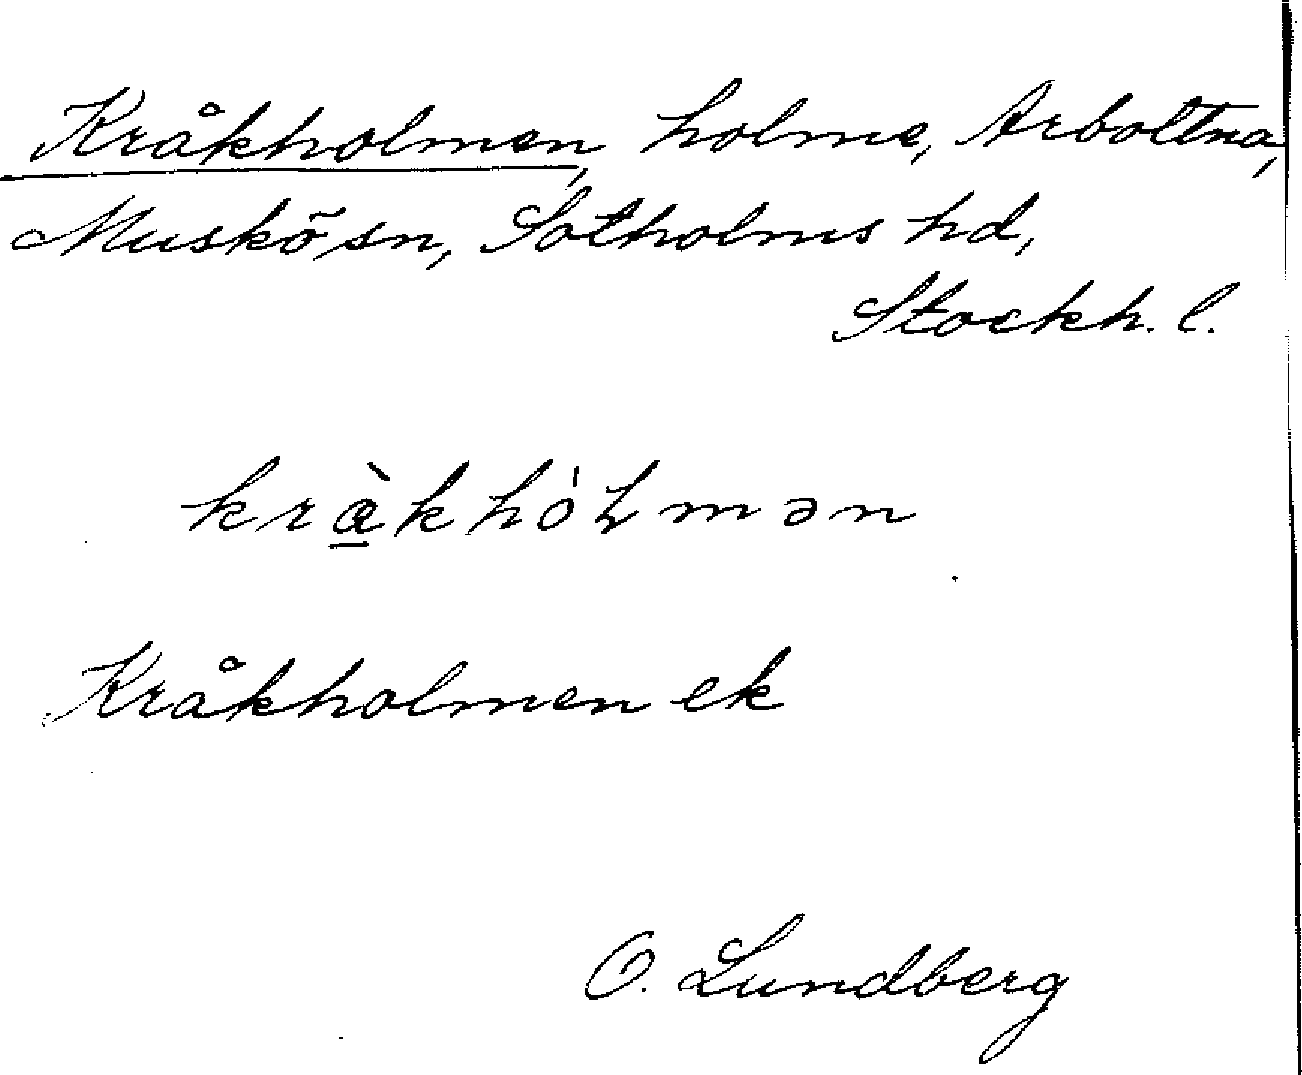 Kråkholmen, holme, Arboltna,
Muskö sn, Sotholms hd,
Stockh. l.
kràkhólmən
Kråkholmen ek
O. Lundberg